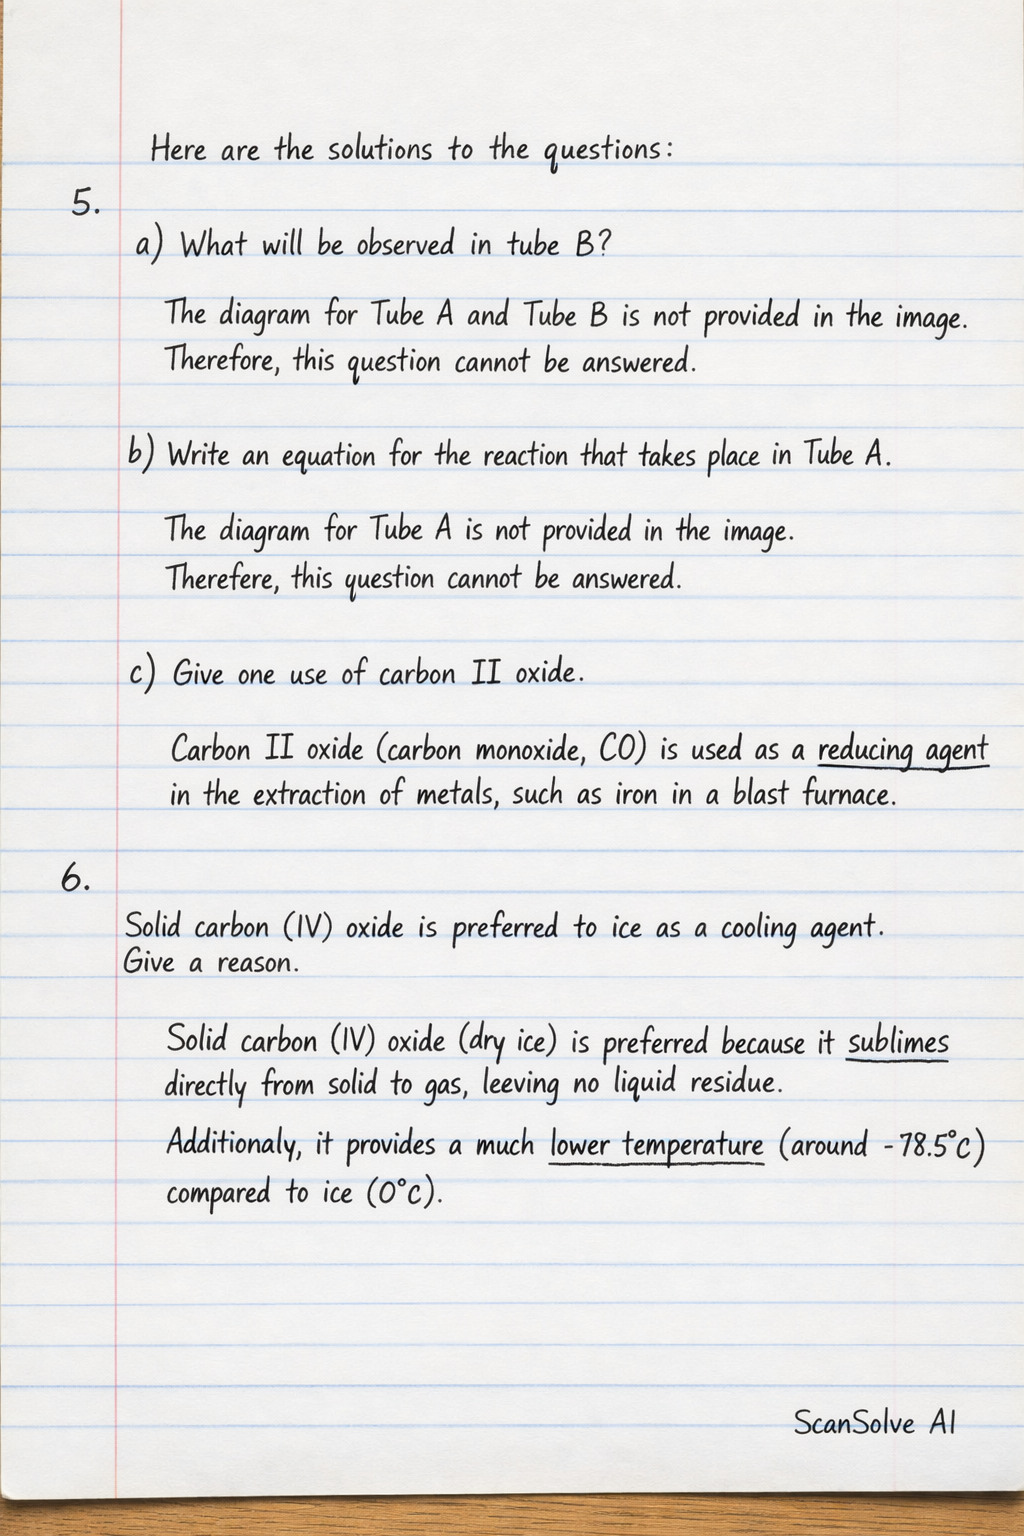 Here are the solutions to the questions:
5.
a) What will be observed in tube B?
The diagram for Tube A and Tube B is not provided in the image.
Therefore, this question cannot be answered.
b) Write an equation for the reaction that takes place in Tube A.
The diagram for Tube A is not provided in the image.
Therefere, this question cannot be answered.
c) Give one use of carbon II oxide.
Carbon II oxide (carbon monoxide, CO) is used as a reducing agent
in the extraction of metals, such as iron in a blast furnace.
6.
Solid carbon (IV) oxide is preferred to ice as a cooling agent.
Give a reason.
Solid carbon (IV) oxide (dry ice) is preferred because it sublimes
directly from solid to gas, leeving no liquid residue.
Additionaly, it provides a much lower temperature (around -78.5°C)
compared to ice (0°C).
ScanSolve AI